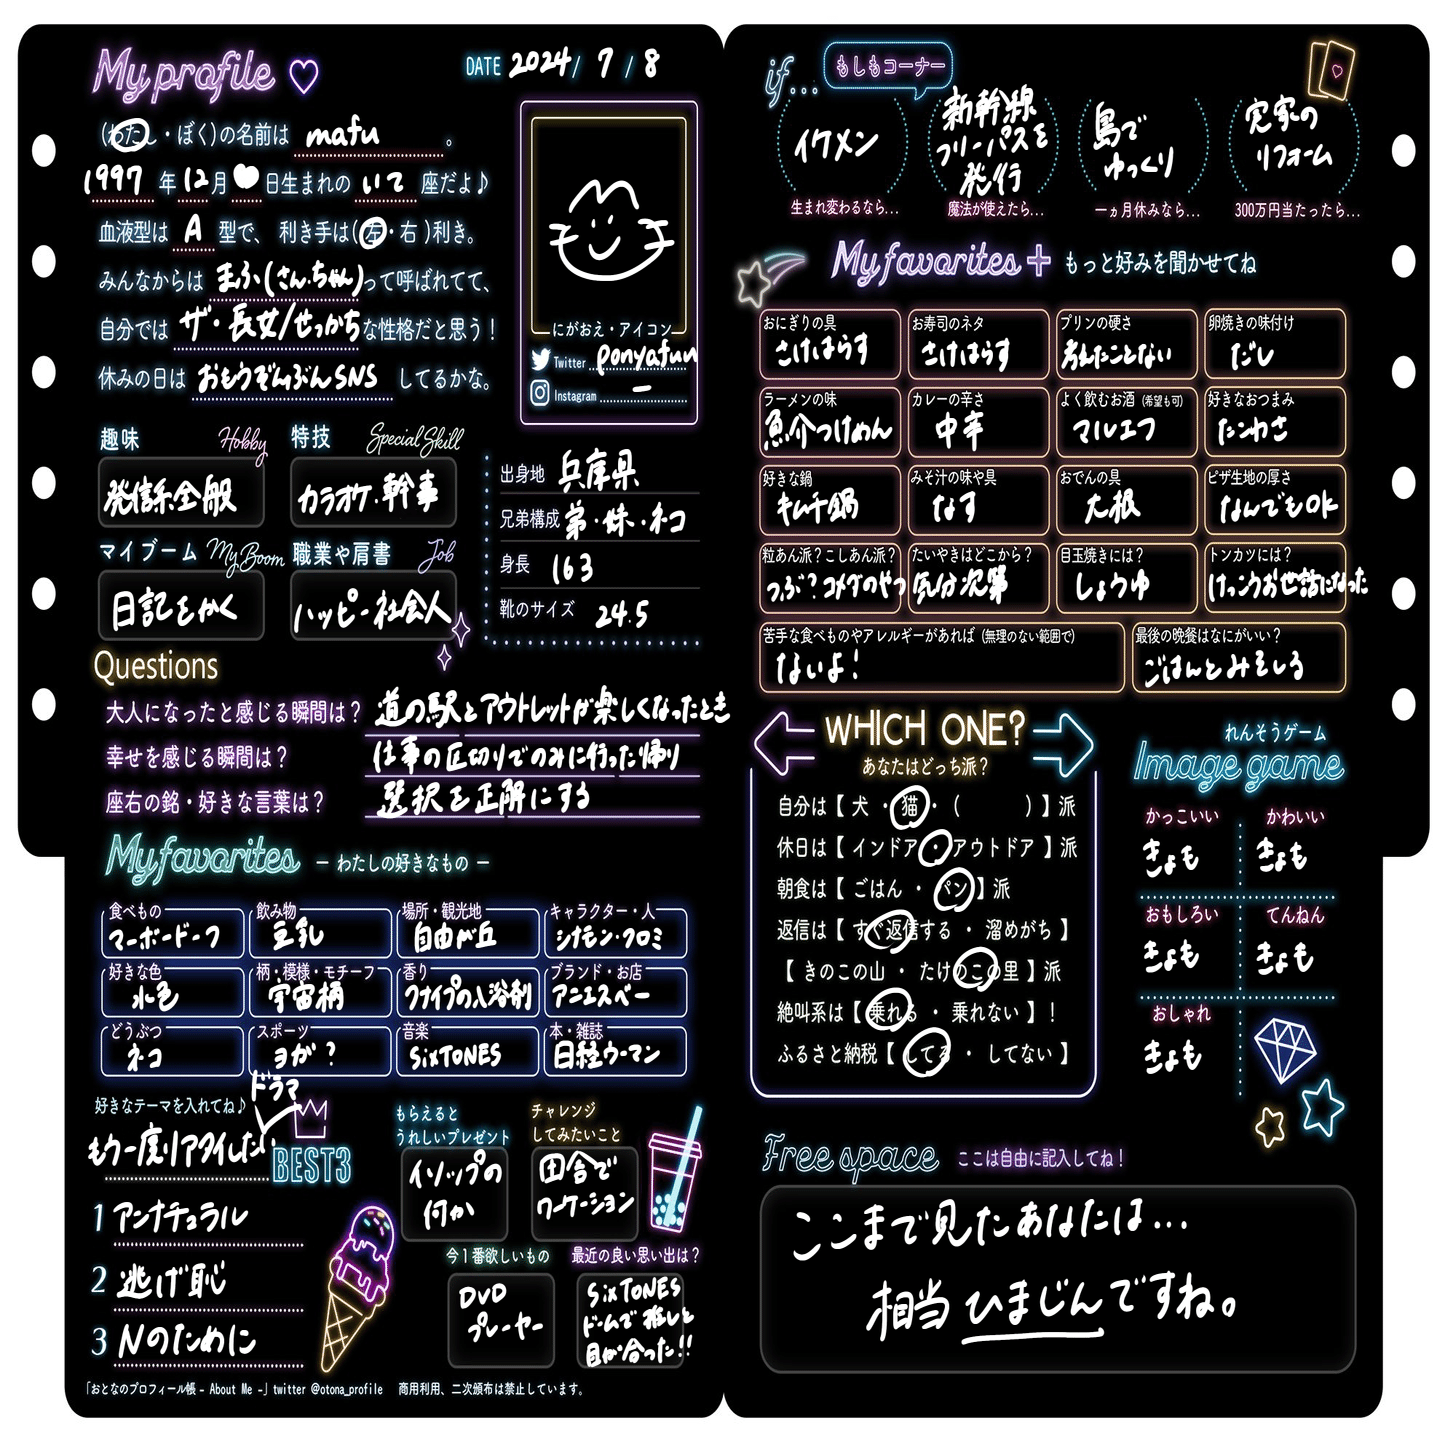 My profile
DATE 2024 / 7 / 8
(わたし・ぼく)の名前は mafu 。
1997 年 12 月 ♥ 日生まれの いて 座だよ♪
血液型は A 型で、 利き手は( 左・右 )利き。
みんなからは まふ(さん.ちゃん) って呼ばれてて、
自分では ザ・長女/せっかち な性格だと思う!
休みの日は おもうぞんぶんSNS してるかな。
にがおえ・アイコン
Twitter ponyafuu
Instagram ー
趣味 Hobby
発信系全般
特技 Special Skill
カラオケ.幹事
マイブーム My Boom
日記をかく
職業や肩書 Job
ハッピー社会人
出身地 兵庫県
兄弟構成 弟・妹・ネコ
身長 163
靴のサイズ 24.5
Questions
大人になったと感じる瞬間は? 道の駅とアウトレットが楽しくなったとき
幸せを感じる瞬間は? 仕事の区切りでのみに行った帰り
座右の銘・好きな言葉は? 選択を正解にする
My favorites ー わたしの好きなもの ー
食べもの
マーボードーフ
飲み物
豆乳
場所・観光地
自由が丘
キャラクター・人
シナモン・クロミ
好きな色
水色
柄・模様・モチーフ
宇宙柄
香り
クナイプの入浴剤
ブランド・お店
アニエスベー
どうぶつ
ネコ
スポーツ
ヨガ?
音楽
SixTONES
本・雑誌
日経ウーマン
好きなテーマを入れてね♪
ドラマ
もう一度リアタイしたい
BEST3
1 アンナチュラル
2 逃げ恥
3 Nのために
もらえると
うれしいプレゼント
イソップの
何か
チャレンジ
してみたいこと
田舎で
ワーケーション
今1番欲しいもの
DVD
プレーヤー
最近の良い思い出は?
SixTONES
ドームで推しと
目が合った!!
「おとなのプロフィール帳 - About Me -」twitter @otona_profile 商用利用、二次頒布は禁止しています。
if... もしもコーナー
イケメン
生まれ変わるなら...
新幹線
フリーパスを
発行
魔法が使えたら...
島で
ゆっくり
一ヵ月休みなら...
実家の
リフォーム
300万円当たったら...
My favorites + もっと好みを聞かせてね
おにぎりの具
さけはらす
お寿司のネタ
さけはらす
プリンの硬さ
考えたことない
卵焼きの味付け
だし
ラーメンの味
魚介つけめん
カレーの辛さ
中辛
よく飲むお酒 (希望も可)
マルエフ
好きなおつまみ
たこわさ
好きな鍋
キムチ鍋
みそ汁の味や具
なす
おでんの具
大根
ピザ生地の厚さ
なんでもOK
粒あん派?こしあん派?
つぶ?コメダのやつ
たいやきはどこから?
気分次第
目玉焼きには?
しょうゆ
トンカツには?
けっこうお世話になった
苦手な食べものやアレルギーがあれば (無理のない範囲で)
ないよ!
最後の晩餐はなにがいい?
ごはんとみそしる
WHICH ONE?
あなたはどっち派?
自分は【 犬 ・ 猫 ・ ( ) 】派
休日は【 インドア ・ アウトドア 】派
朝食は【 ごはん ・ パン 】派
返信は【 すぐ返信する ・ 溜めがち 】
【 きのこの山 ・ たけのこの里 】派
絶叫系は【 乗れる ・ 乗れない 】!
ふるさと納税【 してる ・ してない 】
れんそうゲーム
Image game
かっこいい
きょも
かわいい
きょも
おもしろい
きょも
てんねん
きょも
おしゃれ
きょも
Free space ここは自由に記入してね!
ここまで見たあなたは...
相当ひまじんですね。